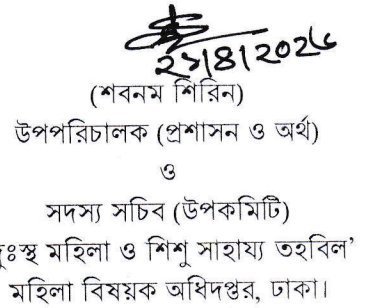 ২১|৪|২০২৬
(শবনম শিরিন)
উপপরিচালক (প্রশাসন ও অর্থ)
ও
সদস্য সচিব (উপকমিটি)
দুঃস্থ মহিলা ও শিশু সাহায্য তহবিল’
মহিলা বিষয়ক অধিদপ্তর, ঢাকা।